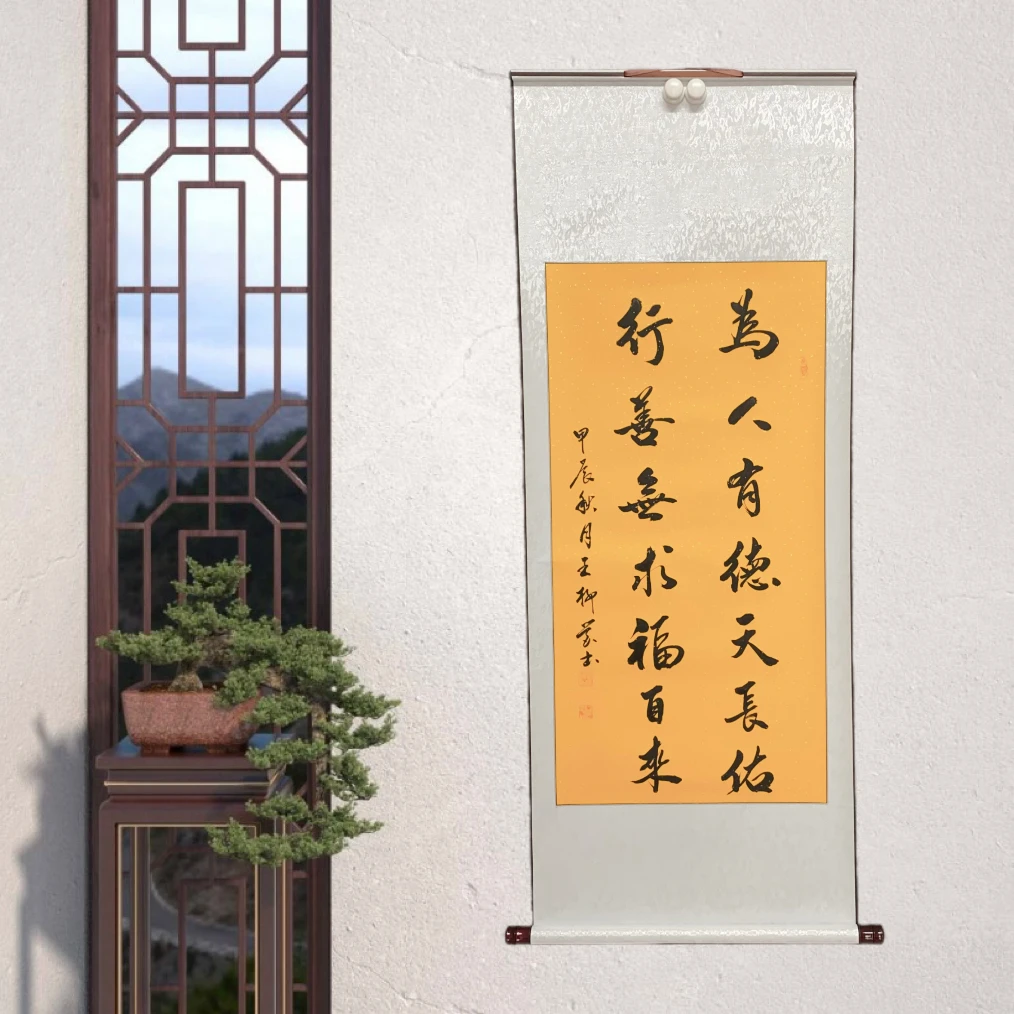 為人有德天長佑
行善無求福自來
甲辰秋月王柳